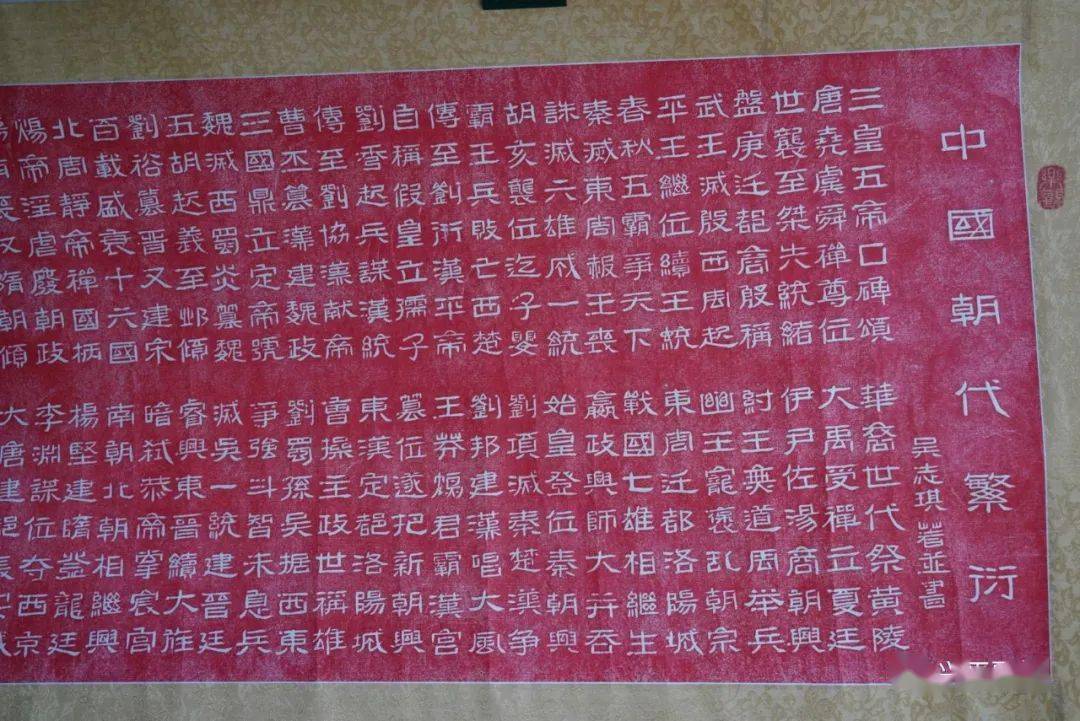 中國朝代繁衍
吳志琪 著並書
三皇五帝口碑頌 華裔世代祭黃陵
唐堯虞舜禪尊位 大禹受禪立夏廷
世襲至桀失統緒 伊尹佐湯商朝興
盤庚迁都商殷稱 紂王無道周举兵
武王滅殷西周起 幽王寵褒乱朝宗
平王繼位續王統 東周迁都洛陽城
春秋五霸爭天下 戰國七雄相繼生
秦滅東周赧王喪 嬴政興師大并吞
誅滅六雄成一統 始皇登位秦朝興
胡亥襲位迄子嬰 劉項滅秦楚漢争
霸王兵敗亡西楚 劉邦建漢唱大風
傳至劉衎漢平帝 王莽煬君霸漢宮
自稱假皇立孺子 篡位遂把新朝興
劉秀起兵謀漢統 東漢定都洛陽城
傳至劉協漢献帝 曹操主政世稱雄
曹丕篡漢建魏政 劉蜀孫吳据西東
三國鼎立定帝號 爭強斗智未息兵
魏滅西蜀炎篡魏 滅吳一統建晉廷
五胡起義至邺傾 睿興東晉續大旌
劉裕篡晉又建宋 暗弒恭帝掌宸宮
百載盛衰十六國 南朝北朝相繼興
北周靜帝禪國柄 楊堅建隋登龍廷
煬帝淫虐廢朝政 李淵謀位夺西京
又隋朝傾 大唐建都